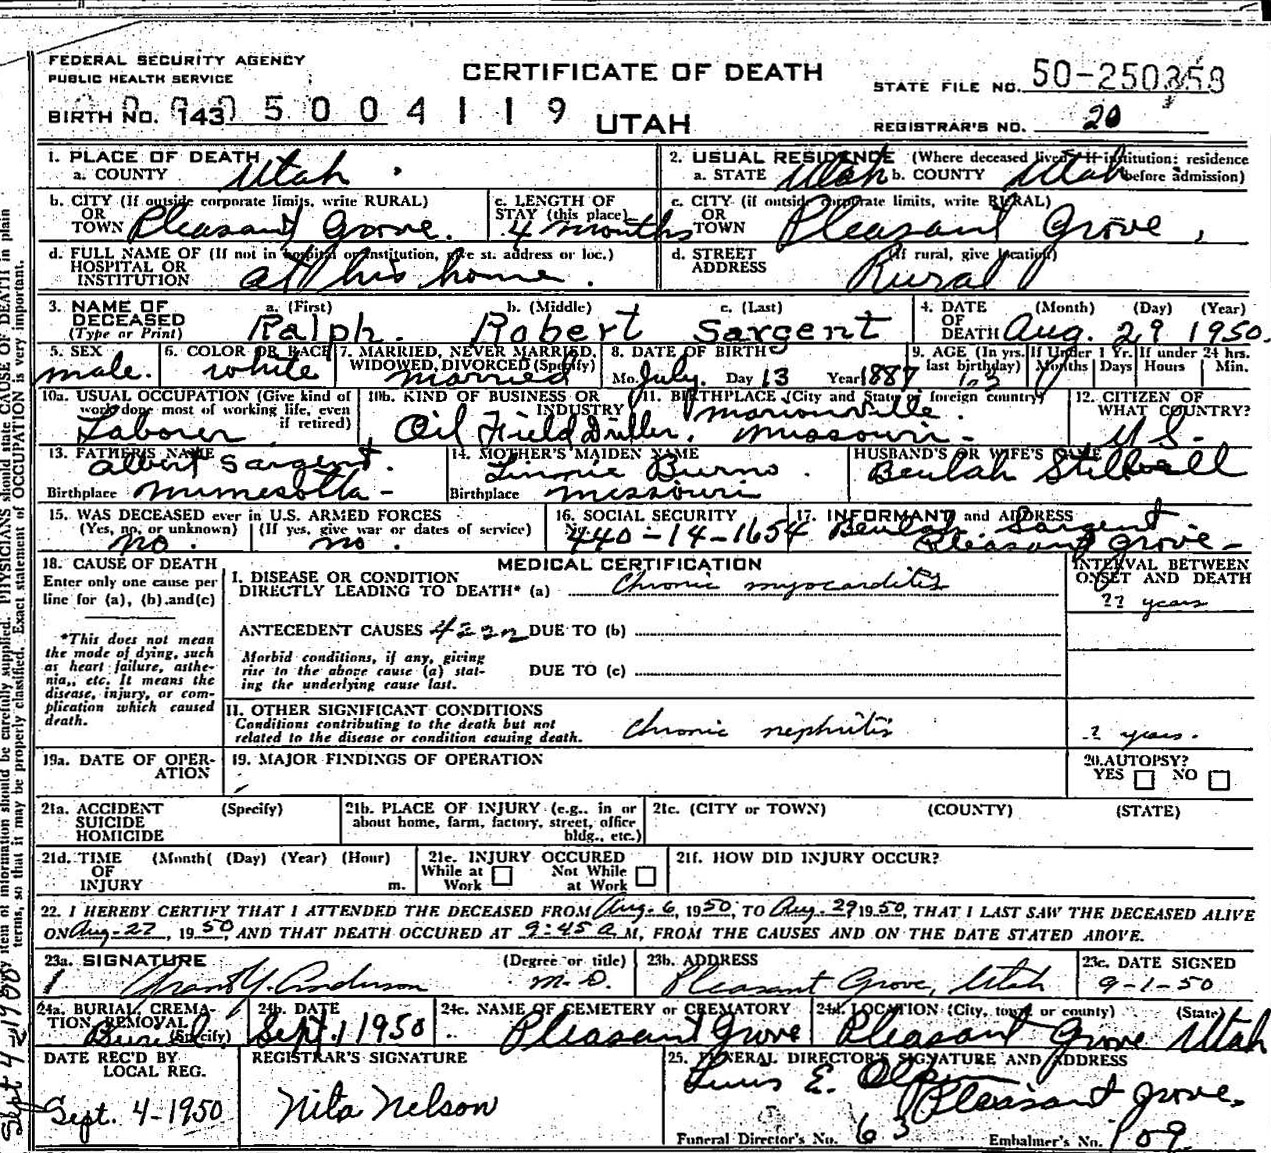 FEDERAL SECURITY AGENCY
PUBLIC HEALTH SERVICE
CERTIFICATE OF DEATH
UTAH
STATE FILE NO. 50-250358
BIRTH NO. 143 05004119
REGISTRAR'S NO. 20
1. PLACE OF DEATH
a. COUNTY Utah
2. USUAL RESIDENCE (Where deceased lived. If institution: residence before admission)
a. STATE Utah b. COUNTY Utah
b. CITY (If outside corporate limits, write RURAL) OR TOWN Pleasant Grove.
c. LENGTH OF STAY (this place) 4 months
c. CITY (if outside corporate limits, write RURAL) OR TOWN Pleasant Grove,
d. FULL NAME OF (If not in hospital or institution, give st. address or loc.) HOSPITAL OR INSTITUTION at his home.
d. STREET ADDRESS (If rural, give location) Rural
3. NAME OF DECEASED (Type or Print)
a. (First) Ralph. b. (Middle) Robert c. (Last) Sargent
4. DATE OF DEATH (Month) (Day) (Year) Aug. 29 1950.
5. SEX male.
6. COLOR OR RACE white
7. MARRIED, NEVER MARRIED, WIDOWED, DIVORCED (Specify) married
8. DATE OF BIRTH Mo. July. Day 13 Year 1887
9. AGE (In yrs. last birthday) If Under 1 Yr. Months Days If under 24 hrs. Hours Min.
10a. USUAL OCCUPATION (Give kind of work done most of working life, even if retired) Laborer
10b. KIND OF BUSINESS OR INDUSTRY Oil Field Driller.
11. BIRTHPLACE (City and State or foreign country) Marionville. Missouri-
12. CITIZEN OF WHAT COUNTRY? U S.
13. FATHER'S NAME Albert Sargent.
Birthplace Minnesotta-
14. MOTHER'S MAIDEN NAME Linnie Burns.
Birthplace Missouri
HUSBAND'S OR WIFE'S NAME Beulah Stillwell
15. WAS DECEASED ever in U.S. ARMED FORCES
(Yes, no, or unknown) no. (If yes, give war or dates of service) no.
16. SOCIAL SECURITY No. 440-14-1654
17. INFORMANT and ADDRESS Beulah Sargent
Pleasant Grove-
18. CAUSE OF DEATH
Enter only one cause per line for (a), (b).and(c)
*This does not mean the mode of dying, such as heart failure, asthenia,, etc. It means the disease, injury, or complication which caused death.
MEDICAL CERTIFICATION
INTERVAL BETWEEN ONSET AND DEATH
I. DISEASE OR CONDITION DIRECTLY LEADING TO DEATH* (a) Chronic myocarditis
?? years
ANTECEDENT CAUSES DUE TO (b)
Morbid conditions, if any, giving rise to the above cause (a) stating the underlying cause last.
DUE TO (c)
II. OTHER SIGNIFICANT CONDITIONS
Conditions contributing to the death but not related to the disease or condition causing death. Chronic nephritis
? years.
19a. DATE OF OPERATION
19. MAJOR FINDINGS OF OPERATION
20. AUTOPSY? YES NO
21a. ACCIDENT SUICIDE HOMICIDE (Specify)
21b. PLACE OF INJURY (e.g., in or about home, farm, factory, street, office bldg., etc.)
21c. (CITY or TOWN) (COUNTY) (STATE)
21d. TIME OF INJURY (Month( (Day) (Year) (Hour) m.
21e. INJURY OCCURED While at Work Not While at Work
21f. HOW DID INJURY OCCUR?
22. I HEREBY CERTIFY THAT I ATTENDED THE DECEASED FROM Aug. 6, 1950, TO Aug. 29 1950, THAT I LAST SAW THE DECEASED ALIVE
ON Aug-27, 1950, AND THAT DEATH OCCURED AT 9:45 a M, FROM THE CAUSES AND ON THE DATE STATED ABOVE.
23a. SIGNATURE Grant Y. Anderson (Degree or title) M.D.
23b. ADDRESS Pleasant Grove, Utah
23c. DATE SIGNED 9-1-50
24a. BURIAL, CREMATION, REMOVAL (Specify) Burial
24b. DATE Sept. 1 1950
24c. NAME OF CEMETERY or CREMATORY Pleasant Grove
24d. LOCATION (City, town or county) (State) Pleasant Grove Utah
DATE REC'D BY LOCAL REG. Sept. 4-1950
REGISTRAR'S SIGNATURE Nita Nelson
25. FUNERAL DIRECTOR'S SIGNATURE AND ADDRESS
Pleasant Grove.
Funeral Director's No. 63 Embalmer's No. 109
item of information should be carefully supplied. PHYSICIANS should state CAUSE OF DEATH in plain
terms, so that it may be properly classified. Exact statement of OCCUPATION is very important.